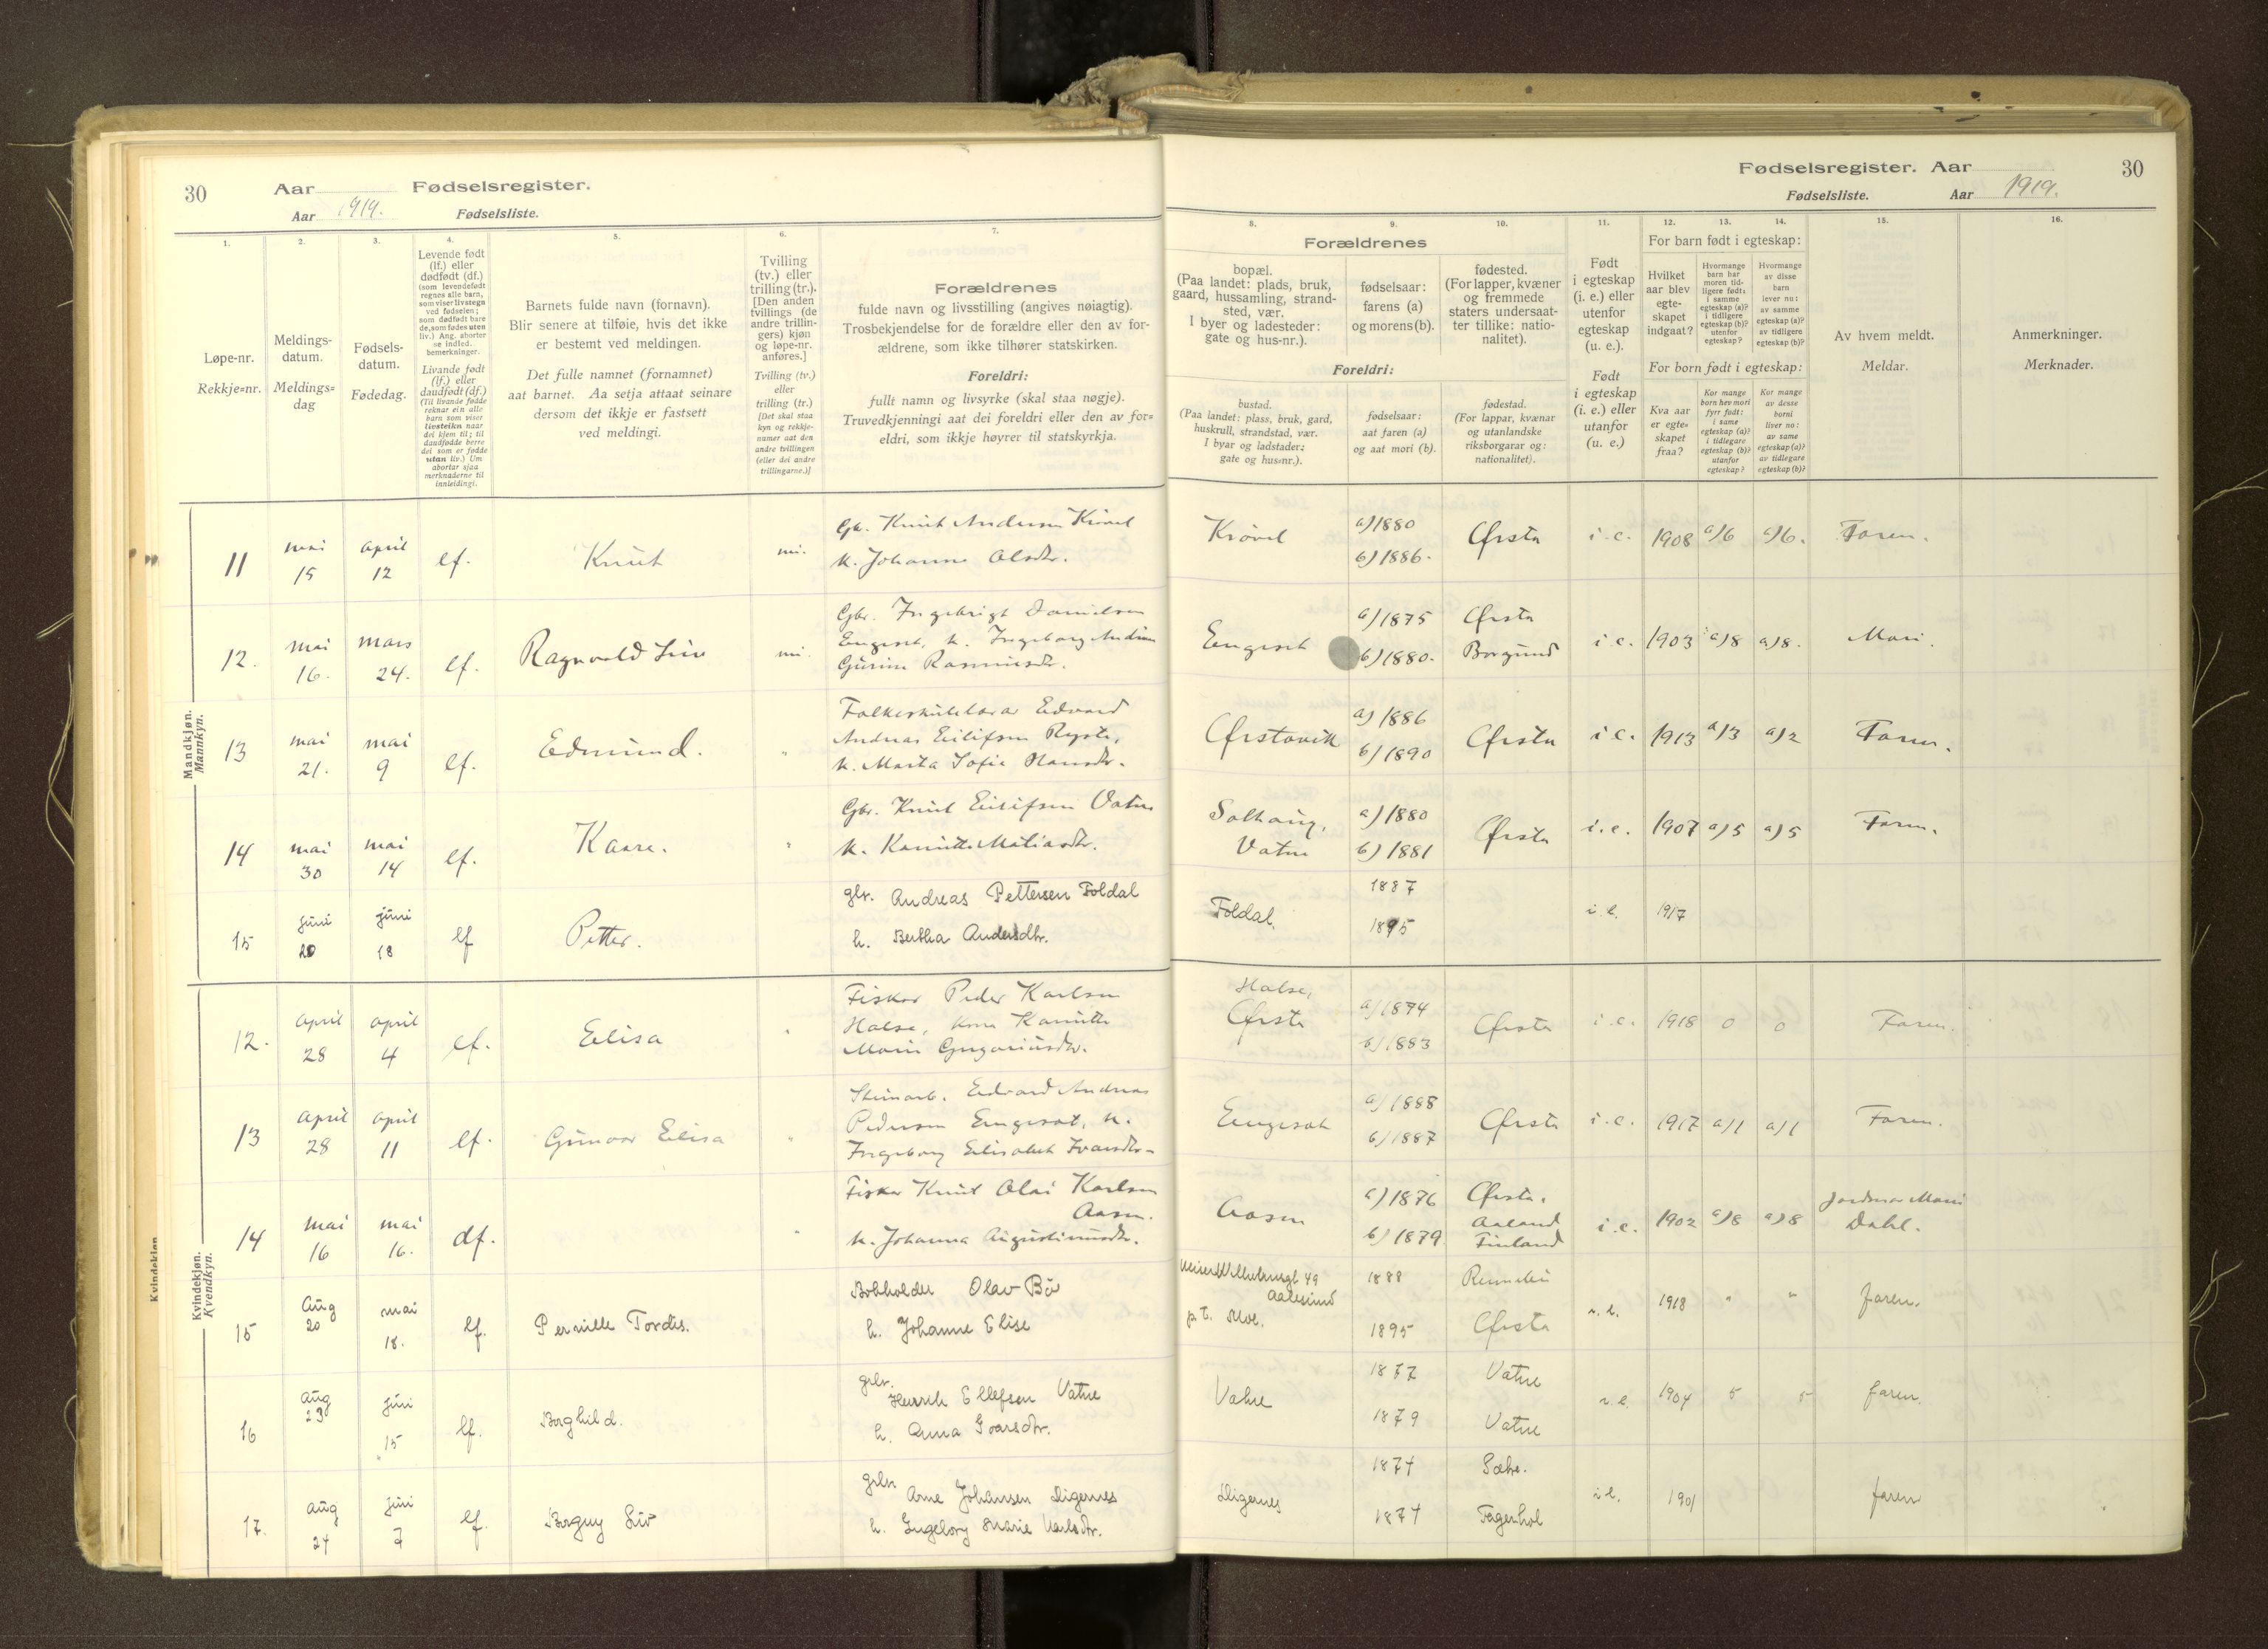 30
Aar
Fødselsregister.
Aar 1919.
Fødselsliste.
1.
2.
3.
4.
5.
6.
7.
Løpe-nr.
Rekkje=nr.
Meldings-
datum.
Meldings=
dag
Fødsels-
datum.
Fødedag.
Levende født
(lf.) eller
dødfødt (df.)
(som levendefødt
regnes alle barn,
som viser livstegn
ved fødselen;
som dødfødt bare
de, som fødes uten
liv.) Ang. aborter
se indled.
bemerkninger.
Livande født
(lf.) eller
daudfødt (df.)
(Til livande fødde
reknar ein alle
barn som viser
livsteikn naar
dei kjem til; til
daudfødde berre
dei som er fødde
utan liv.) Um
abortar sjaa
merknaderne til
innleidingi.
Barnets fulde navn (fornavn).
Blir senere at tilføie, hvis det ikke
er bestemt ved meldingen.
Det fulle namnet (fornamnet)
aat barnet. Aa setja attaat seinare
dersom det ikkje er fastsett
ved meldingi.
Tvilling
(tv.) eller
trilling (tr.).
[Den anden
tvillings (de
andre trillin-
gers) kjøn
og løpe-nr.
anføres.]
Tvilling (tv.)
eller
trilling (tr.)
[Det skal staa
kyn og rekkje-
numer aat den
andre tvillingen
(eller dei andre
trillingarne.)]
Forældrenes
fulde navn og livsstilling (angives nøiagtig).
Trosbekjendelse for de forældre eller den av for-
ældrene, som ikke tilhører statskirken.
Foreldri:
fullt namn og livsyrke (skal staa nøgje).
Truvedkjenningi aat dei foreldri eller den av for=
eldri, som ikkje høyrer til statskyrkja.
Mandkjøn.
Mannkyn.
11
mai
15
april
12
lf.
Knut
Johanne Olsdtr.
12.
mai
16.
mars
24.
lf.
Ragnvald
Gbr. Ingebrigt Danielsen
Engeset, k. Ingeborg
Rasmusdtr.
13
mai
21.
mai
9
lf.
Edmund.
Edvard
Andreas Eilifsen Ryste,
k. Marta Sofie Hansdtr.
14
mai
30
mai
14
lf.
Kaare.
Gbr. Knut Eilifsen Vatne
k. Matiasdtr.
15
juni
20
juni
18
lf
Petter.
Andreas Pettersen Foldal
h. Bertha Andersdtr.
Kvindekjøn.
Kvendkyn.
Kvindekjøn
12.
april
28
april
4
lf.
Elisa
Fiskar Peder Karlsen
Halse, kona
13
april
28
april
11
lf.
Gunvor Elisa
Edvard Andreas
Pedersen Engeset, k.
Ingeborg Elisabet Ivarsdtr.
14
mai
16
mai
16.
df.
Fiskar Knut Olai Karlsen
Aasen.
k. Johanna
15
Aug
20
mai
18.
lf.
Pernille Tordis.
Bokholder Olav Bö
h. Johanne Elise
16
aug
23
juni
15
lf.
Borghild.
Ellefsen Vatne
h. Anna Ivarsdtr.
17.
aug
24
juni
7
lf.
Borgny Liv
Arne Johansen Digernes
h. Ingeborg Marie Karlsdtr.
Fødselsregister. Aar
30
Fødselsliste. Aar 1919.
8.
9.
10.
11.
12.
13.
14.
15.
16.
Forældrenes
bopæl.
(Paa landet: plads, bruk,
gaard, hussamling, strand-
sted, vær.
I byer og ladesteder:
gate og hus-nr.).
fødselsaar:
farens (a)
og morens (b).
fødested.
(For lapper, kvæner
og fremmede
staters undersaat-
ter tillike: natio-
nalitet).
Foreldri:
bustad.
(Paa landet: plass, bruk, gard,
huskrull, strandstad, vær.
I byar og ladstader:
gate og hus=nr.).
fødselsaar:
aat faren (a)
og aat mori (b).
fødestad.
(For lappar, kvænar
og utanlandske
riksborgarar og:
nationalitet).
Født
i egteskap
(i. e.) eller
utenfor
egteskap
(u. e.).
Født
i egteskap
(i. e.) eller
utanfor
(u. e.)
For barn født i egteskap:
Hvilket
aar blev
egte-
skapet
indgaat?
Hvormange
barn har
moren tid-
ligere født,
i samme
egteskap (a)?
i tidligere
egteskap (b)?
utenfor
egteskap?
Hvormange
av disse
barn
lever nu:
av samme
egteskap (a)?
av tidligere
egteskap (b)?
For born født i egteskap:
Kva aar
er egte-
skapet
fraa?
Kor mange
born hev mori
fyrr født:
i same
egteskap (a)?
i tidlegare
egteskap (b)?
utanfor
egteskap?
Kor mange
av desse
borni
liver no:
av same
egteskap (a)?
av tidlegare
egteskap (b)?
Av hvem meldt.
Meldar.
Anmerkninger.
Merknader.
a) 1880
b) 1886.
Ørsta
i. e.
1908
a) 6
a) 6.
Faren.
Engeset
a) 1875
b) 1880.
Ørsta
Borgund
i. e.
1903
a) 8
a) 8.
Mori.
Ørstavik
a) 1886
b) 1890
Ørsta
i. e.
1913
a) 3
a) 2
Faren.
Solhaug,
Vatne
a) 1880
b) 1881
Ørsta
i. e.
1907
a) 5
a) 5
Faren.
Foldal.
1887
1895
i. e.
1917
Halse,
Ørsta
a) 1874
b) 1883
Ørsta
i. e.
1918
0
0
Faren.
Engeset
a) 1888
b) 1887
Ørsta
i. e.
1917
a) 1
a) 1
Faren.
Aasen
a) 1876
b) 1879
Ørsta.
Aaland
Finland
i. e.
1902
a) 8
a) 8
Jordmor Marie
Dahl.
49
Aalesund
p. t. Moe.
1888
1895
Ørsta
i. e.
1918
"
"
faren.
Vatne
1877
1879
Vatne
Vatne
i. e.
1904
5
5
faren.
Digernes
1874
1874
Sæbø.
Fagerhol
i. e.
1901
faren